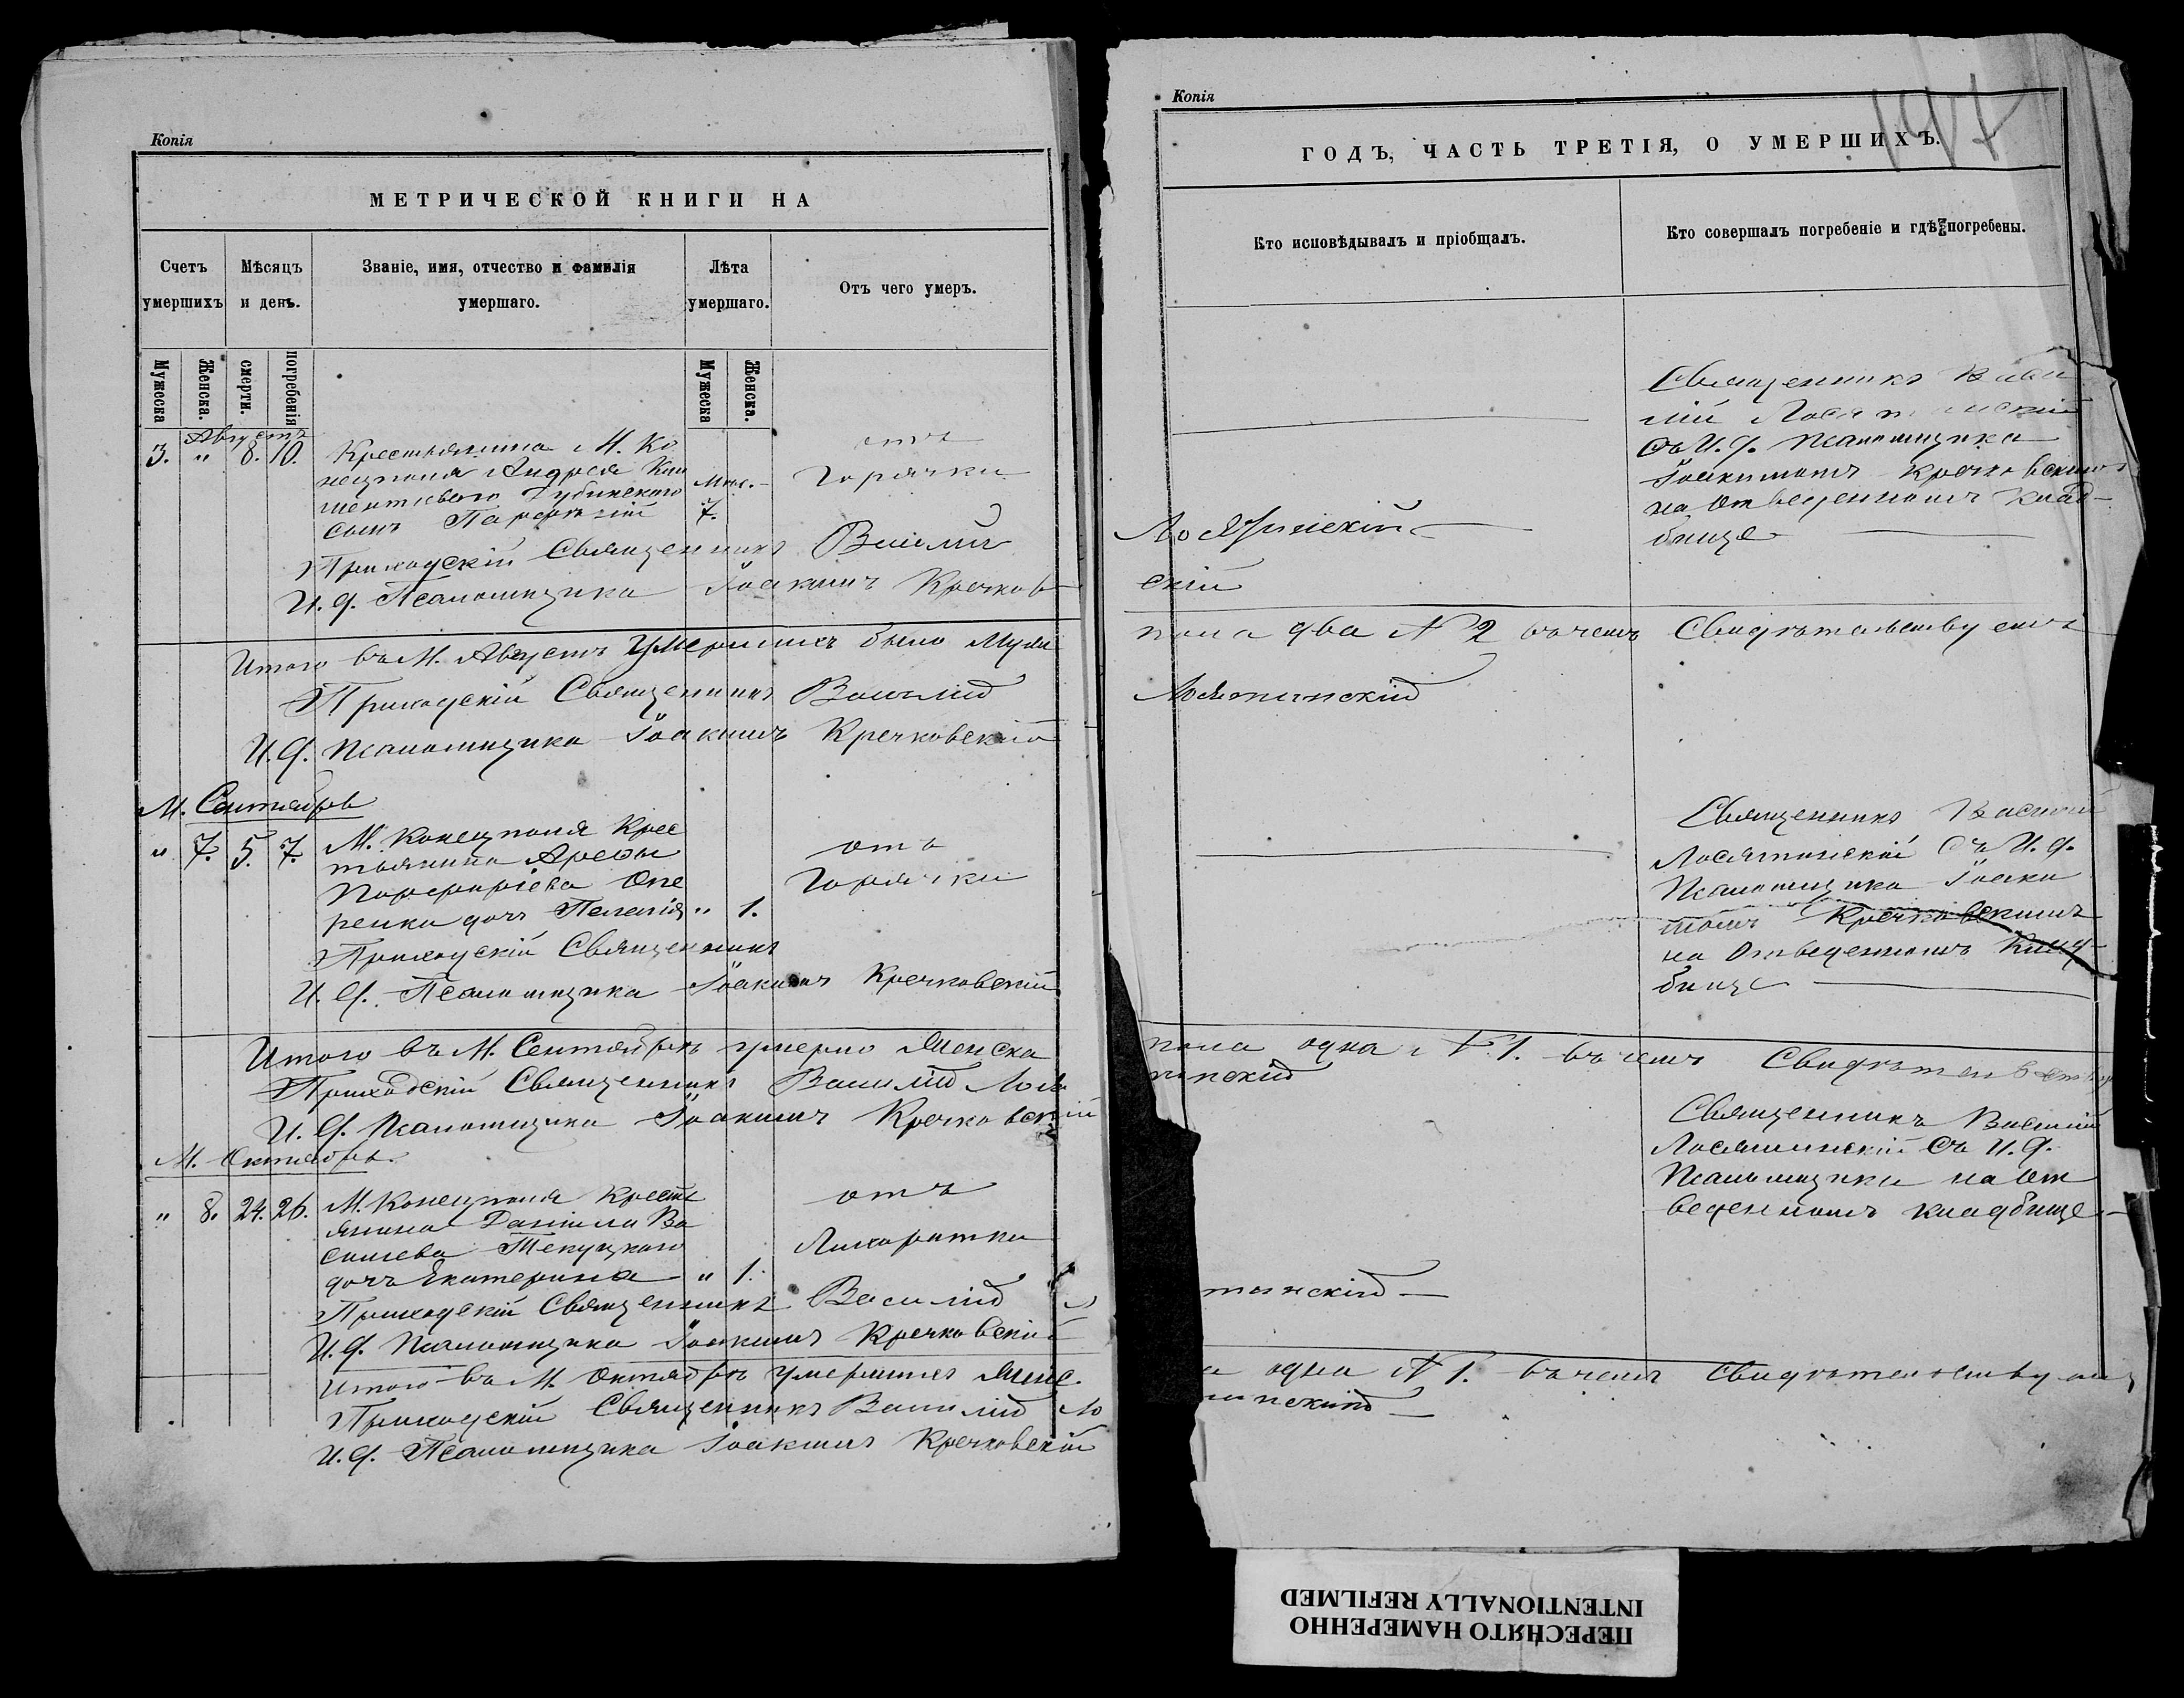 Копія
МЕТРИЧЕСКОЙ КНИГИ НА
Счетъ умершихъ
Мѣсяцъ и день.
Званіе, имя, отчество и фамилія умершаго.
Лѣта умершаго.
Отъ чего умеръ.
Мужеска
Женска.
смерти.
погребенія
Мужеска
Женска.
Августъ
3. " 8. 10.
Крестьянина М. Ко
нецполя Андрея
Дубинскаго
сынъ
7.
отъ
Горячки
Приходскій Священникъ Василій
И. д. Псаломщика Іоакимъ Кречков
Итого въ М. Августѣ умершихъ было Муж
Приходскій Священникъ Василій
И. д. Псаломщика Іоакимъ Кречковскій
М. Сентябрь
" 7. 5. 7.
М. Конецполя Крес
тьянина Арефы
Порфиріева Опе
ренка дочь Пелагія " 1.
отъ
Горячки
Приходскій Священникъ
И. д. Псаломщика Іоакимъ Кречковскій
Итого въ М. Сентябрѣ умерло Женска
Приходскій Священникъ Василій Лося
И. д. Псаломщика Іоакимъ Кречковскій
М. Октябрь.
" 8. 24. 26.
М. Конецполя Кресть
янина Даніила Ва
сильева Текуцкаго
дочь Екатерина " 1.
отъ
Лихоратки
Приходскій Священникъ Василій Л
И. д. Псаломщика Іоакимъ Кречковскій
Итого въ М. Октябрѣ умершихъ Женс.
Приходскій Священникъ Василій Ло
И. д. Псаломщика Іоакимъ Кречковскій
Копія
ГОДЪ, ЧАСТЬ ТРЕТІЯ, О УМЕРШИХЪ.
Кто исповѣдывалъ и пріобщалъ.
Кто совершалъ погребеніе и гдѣ погребены.
Священникъ Васи
лій Лосятинскій
съ И. д. Псаломщика
Іоакимомъ Кречковскимъ
на отведенномъ клад-
бище
Лосятинскій
скій
пола два № 2 въ чемъ Свидѣтельствуемъ
Лосятинскій
Священникъ Василій
Лосятинскій съ И. д.
Псаломщика Іоаки
момъ Кречковскимъ
на Отведенномъ Клад-
бище
пола одна № 1. въ чемъ Свидѣтельству
тинскій
Священникъ Василій
Лосятинскій съ И. д.
Псаломщика на от
веденномъ кладбище
тинскій
а одна № 1. въ чемъ Свидѣтельствуемъ
тинскій
ПЕРЕСНЯТО НАМЕРЕННО
INTENTIONALLY REFILMED